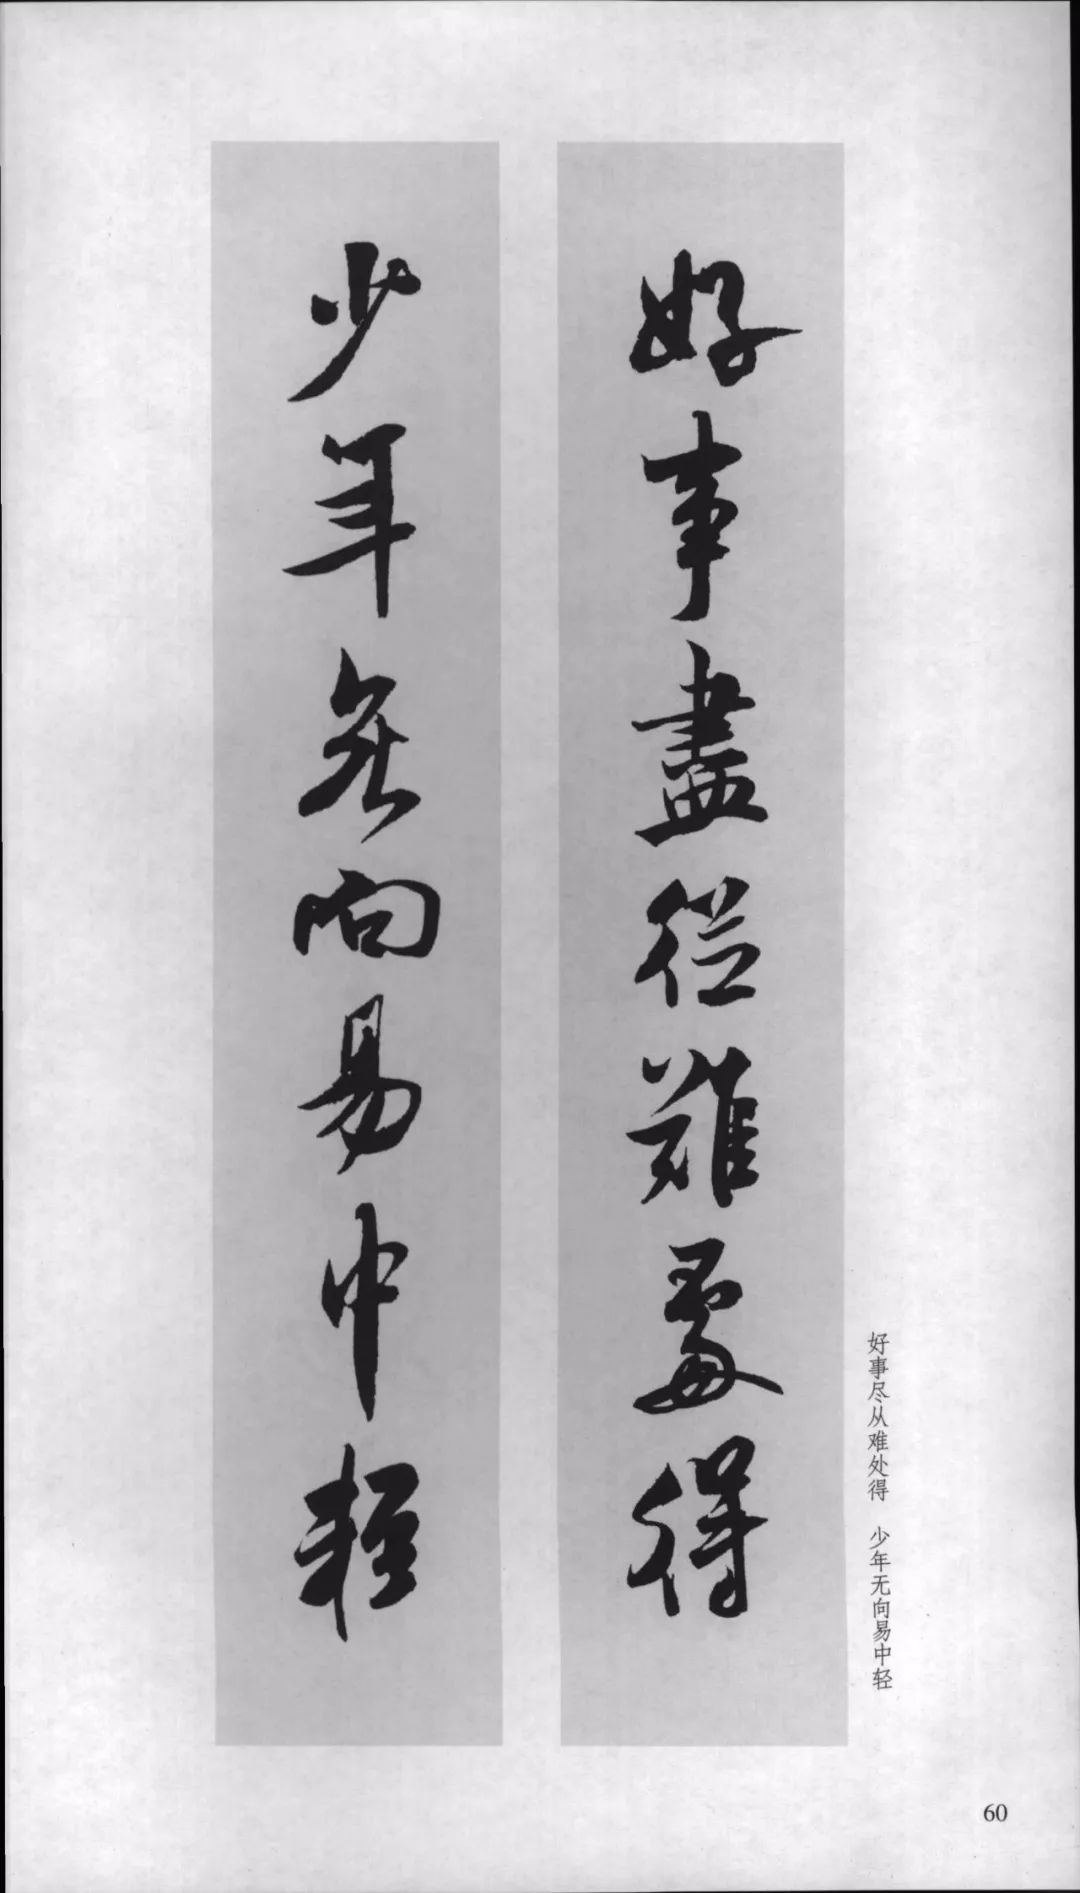 好事盡從難處得
少年無向易中輕
好事尽从难处得 少年无向易中轻
60